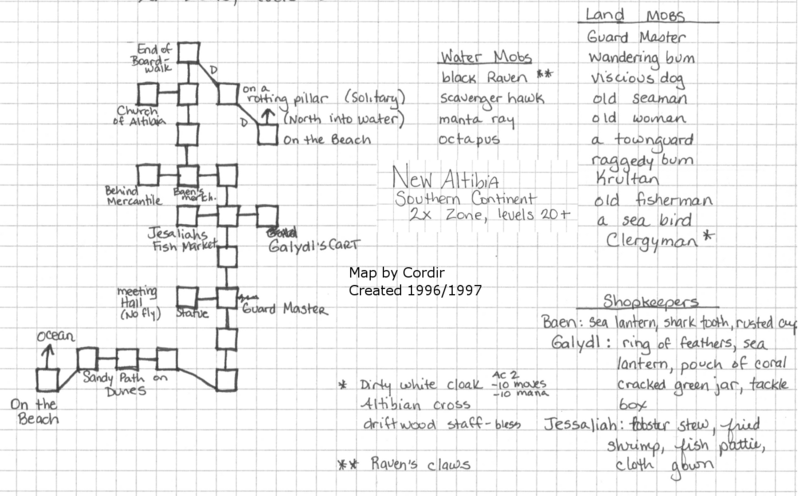 End of
Board-
walk
D
Church
of Altibia
on a
rotting pillar (Solitary)
D
(North into water)
On the Beach
Behind
Mercantile
Baen's
merch.
Jesaliahs
Fish Market
Galydl's CART
meeting
Hall
(No fly)
Statue
Guard Master
Ocean
Sandy Path on
Dunes
On the
Beach
Water Mobs
black Raven **
scavenger hawk
manta ray
octapus
New Altibia
Southern Continent
2x Zone, levels 20+
Map by Cordir
Created 1996/1997
Land Mobs
Guard Master
wandering bum
viscious dog
old seaman
old woman
a townguard
raggedy bum
Krultan
old fisherman
a sea bird
Clergyman *
Shopkeepers
Baen: sea lantern, shark tooth, rusted cup
Galydl: ring of feathers, sea
lantern, pouch of coral
cracked green jar, tackle
box
Jessaliah: lobster stew, fried
shrimp, fish pattie,
cloth gown
* Dirty white cloak AC 2
-10 moves
-10 mana
Altibian cross
driftwood staff-bless
** Raven's claws